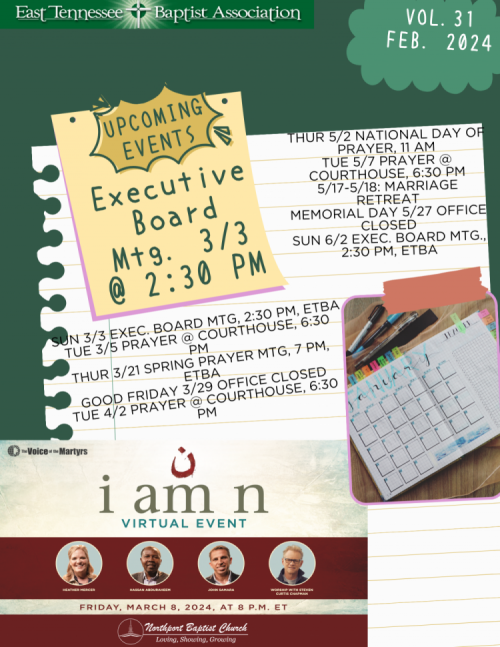 East Tennessee Baptist Association
VOL. 31
FEB. 2024
UPCOMING
EVENTS
Executive
Board
Mtg. 3/3
@ 2:30 PM
THUR 5/2 NATIONAL DAY OF
PRAYER, 11 AM
TUE 5/7 PRAYER @
COURTHOUSE, 6:30 PM
5/17-5/18: MARRIAGE
RETREAT
MEMORIAL DAY 5/27 OFFICE
CLOSED
SUN 6/2 EXEC. BOARD MTG.,
2:30 PM, ETBA
SUN 3/3 EXEC. BOARD MTG, 2:30 PM, ETBA
TUE 3/5 PRAYER @ COURTHOUSE, 6:30
PM
THUR 3/21 SPRING PRAYER MTG, 7 PM,
ETBA
GOOD FRIDAY 3/29 OFFICE CLOSED
TUE 4/2 PRAYER @ COURTHOUSE, 6:30
PM
January
The Voice of the Martyrs
ن
i am n
VIRTUAL EVENT
HEATHER MERCER
JOHN SAMARA
WORSHIP WITH STEVEN
CURTIS CHAPMAN
FRIDAY, MARCH 8, 2024, AT 8 P.M. ET
Northport Baptist Church
Loving, Showing, Growing